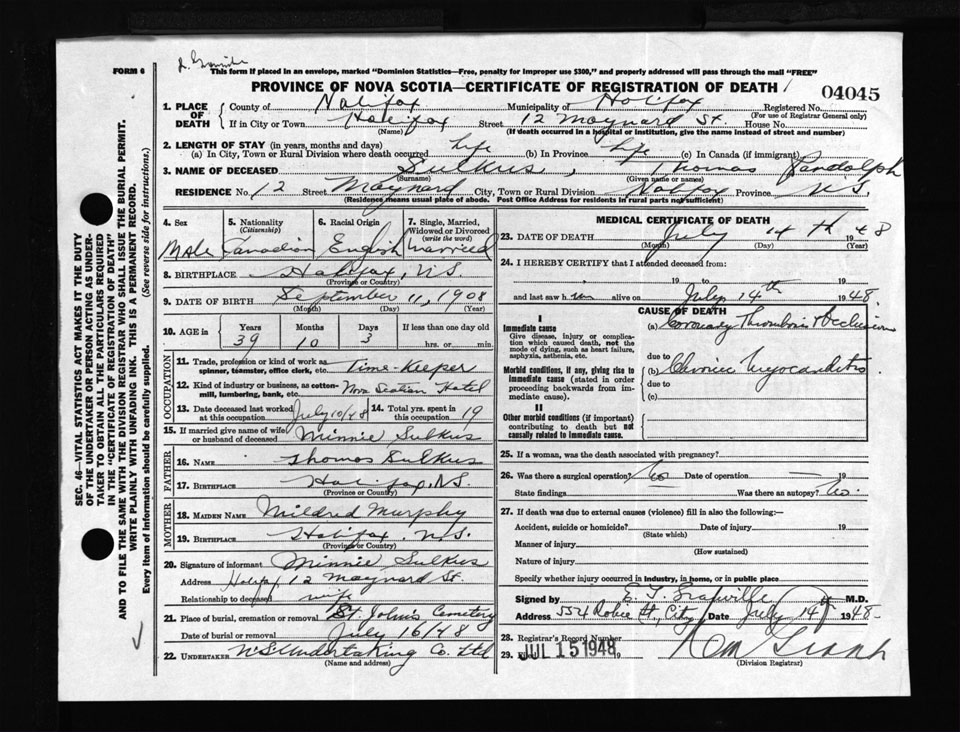 FORM 6
This form if placed in an envelope, marked "Dominion Statistics—Free, penalty for improper use $300," and properly addressed will pass through the mail "FREE"
PROVINCE OF NOVA SCOTIA—CERTIFICATE OF REGISTRATION OF DEATH
04045
1. PLACE OF DEATH County of Halifax Municipality of Halifax Registered No.
(For use of Registrar General only)
If in City or Town Halifax Street 12 Maynard St. House No.
(Name) (If death occurred in a hospital or institution, give the name instead of street and number)
2. LENGTH OF STAY (in years, months and days)
(a) In City, Town or Rural Division where death occurred Life (b) In Province Life (c) In Canada (if immigrant)
3. NAME OF DECEASED Sulkus, Thomas Randolph
(Surname) (Given name or names)
RESIDENCE No. 12 Street Maynard City, Town or Rural Division Halifax Province N.S.
(Residence means usual place of abode. Post Office Address for residents in rural parts not sufficient)
4. Sex 5. Nationality (Citizenship) 6. Racial Origin 7. Single, Married, Widowed or Divorced (write the word)
Male Canadian English married
8. BIRTHPLACE Halifax, N.S.
(Province or Country)
9. DATE OF BIRTH September 11, 1908
(Month) (Day) (Year)
10. AGE in Years Months Days If less than one day old
39 10 3 hrs. or min.
OCCUPATION
11. Trade, profession or kind of work as spinner, teamster, office clerk, etc. Time-Keeper
12. Kind of industry or business, as cotton-mill, lumbering, bank, etc. Nova Scotian Hotel
13. Date deceased last worked at this occupation July 10/48 14. Total yrs. spent in this occupation 19
15. If married give name of wife or husband of deceased Minnie Sulkus
FATHER
16. NAME Thomas Sulkus
17. BIRTHPLACE Halifax, N.S.
(Province or Country)
MOTHER
18. MAIDEN NAME Mildred Murphy
19. BIRTHPLACE Halifax, N.S.
(Province or Country)
20. Signature of informant Minnie Sulkus
Address Halifax, 12 Maynard St.
Relationship to deceased wife
21. Place of burial, cremation or removal St. John's Cemetery
Date of burial or removal July 16/48
22. UNDERTAKER N.S. Undertaking Co. Ltd
(Name and address)
MEDICAL CERTIFICATE OF DEATH
23. DATE OF DEATH July 14th 1948
(Month) (Day) (Year)
24. I HEREBY CERTIFY that I attended deceased from:
, 19 to 19
and last saw him alive on July 14th 1948.
CAUSE OF DEATH
I
Immediate cause
Give disease, injury or complication which caused death, not the mode of dying, such as heart failure, asphyxia, asthenia, etc.
(a) Coronary Thrombosis Occlusion
due to
Morbid conditions, if any, giving rise to immediate cause (stated in order proceeding backwards from immediate cause).
(b) Chronic Myocarditis
due to
(c)
II
Other morbid conditions (if important) contributing to death but not causally related to immediate cause.
25. If a woman, was the death associated with pregnancy?
26. Was there a surgical operation? No Date of operation — 19
State findings Was there an autopsy? No.
27. If death was due to external causes (violence) fill in also the following:—
Accident, suicide or homicide? Date of injury 19
(State which)
Manner of injury
(How sustained)
Nature of injury
Specify whether injury occurred in industry, in home, or in public place
Signed by E. T. Granville M.D.
Address 554 Robie St., City Date July 14th 1948
28. Registrar's Record Number
29. JUL 15 1948
(Division Registrar)
SEC. 46—VITAL STATISTICS ACT MAKES IT THE DUTY
OF THE UNDERTAKER OR PERSON ACTING AS UNDERTAKER TO OBTAIN ALL THE PARTICULARS REQUIRED
IN THE "CERTIFICATE OF REGISTRATION OF DEATH"
AND TO FILE THE SAME WITH THE DIVISION REGISTRAR WHO SHALL ISSUE THE BURIAL PERMIT.
WRITE PLAINLY WITH UNFADING INK. THIS IS A PERMANENT RECORD.
Every item of information should be carefully supplied. (See reverse side for instructions.)